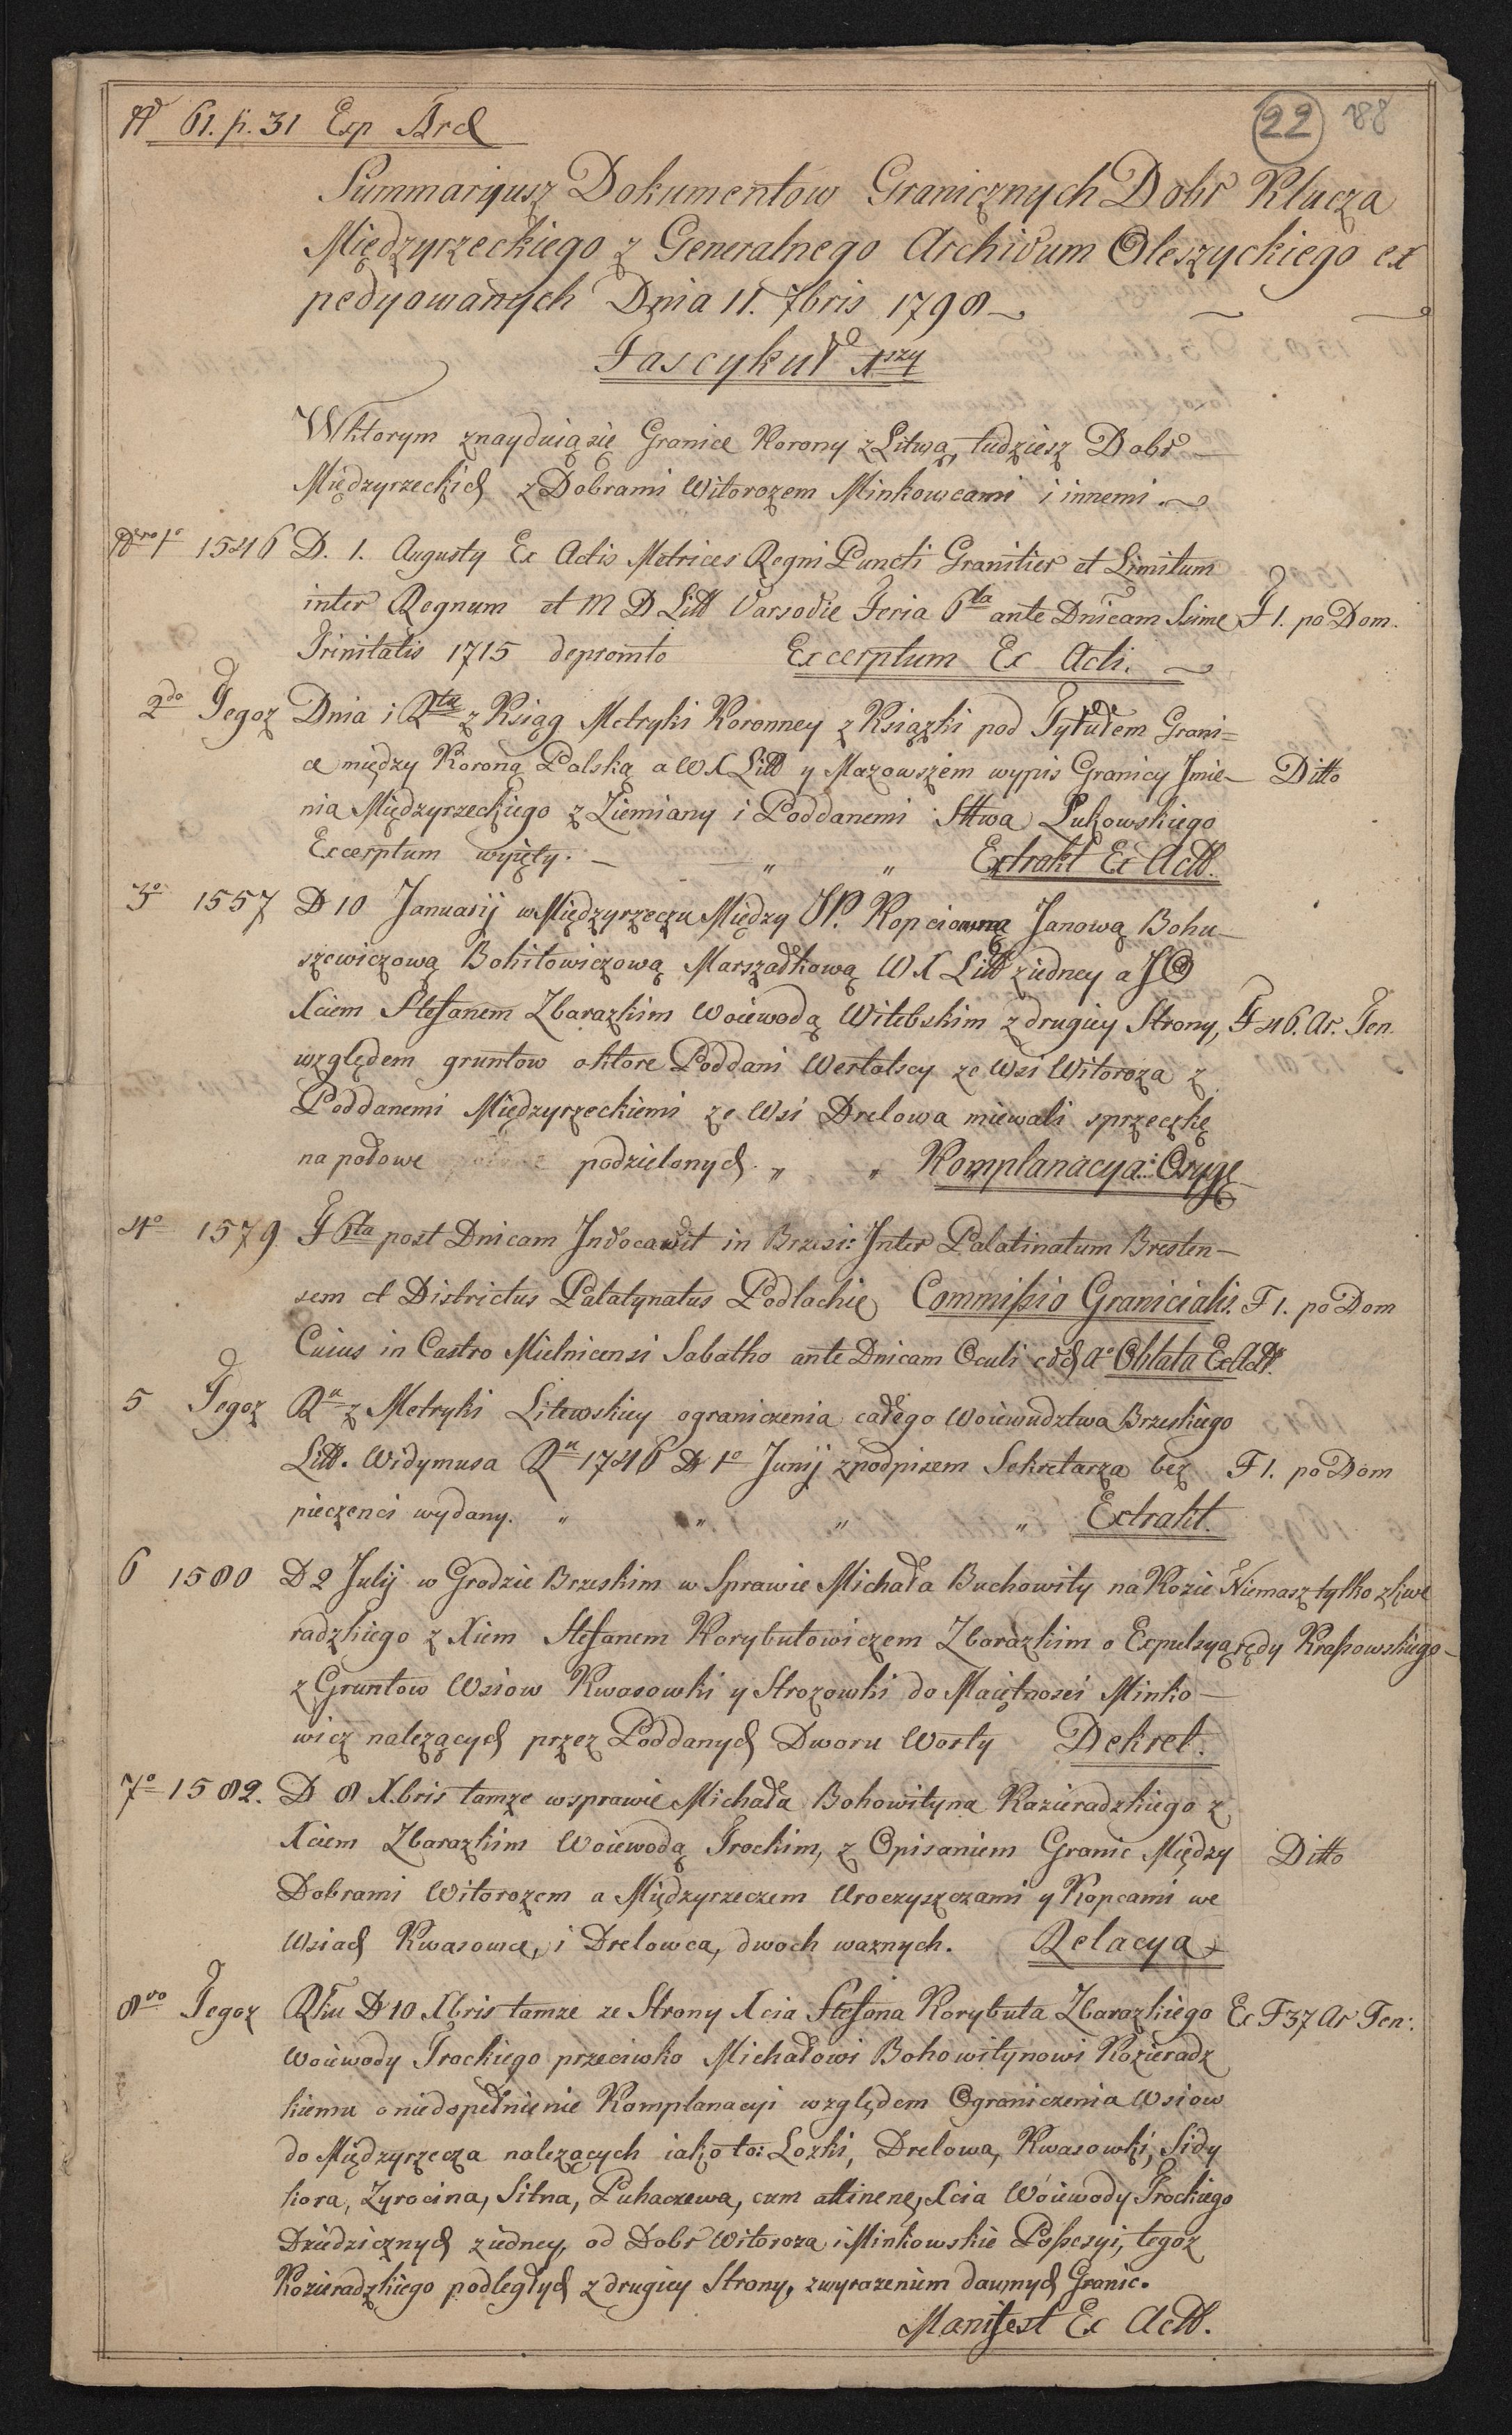 N 61. p. 31 Exp Arch
22 188
Summaryusz Dokumentow Granicznych Dobr Klucza
Międzyrzeckiego z Generalnego Archivum Oleszyckiego ex
pedyowanych Dnia 11. 7bris 1798
Fascykuł 1szy
W ktorym znayduią się Granice Korony z Litwą, tudziesz Dobr
Międzyrzeckich z Dobrami Witorozem Minkowcami i innemi.
Nro 1o 1546 D. 1. Augusty Ex Actis Metrices Regni Puncti Granitier et Limitum
inter Regnum et M D Litt Varsovie Feria 6ta ante Dnicam Ssime F 1. po Dom.
Trinitatis 1715 depromto Excerptum Ex Acti.
2do Tegoz Dnia i Rku z Ksiąg Metryki Koronney z Ksiązki pod Tytułem Grani=
ce między Koroną Polską a W X Litt y Mazowszem wypis Granicy Jmie— Ditto
nia Międzyrzeckiego z Ziemiany i Poddanemi Sttwa Łukowskiego
Excerptum wyięty. — " " Extrakt Ex Actt.
3o 1557 D 10 Januarij w Międzyrzeczu Między JP. Kopciowną Janową Bohu—
szewiczową Bohitowiczową Marszałkową W X Litt ziedney a JO
Xciem Stefanem Zbarazkim Woiewodą Witebskim z drugiey Strony, F 46. Ar. Ten.
względem gruntow o ktore Poddani Wertolscy ze Wsi Witoroza z
Poddanemi Międzyrzeckiemi ze Wsi Drelowa miewali sprzeczkę
na połowe podzielonych. " " Komplanacya: Oryg
4o 1579 F 6ta post Dnicam Invocavit in Brzesi: Inter Palatinatum Bresten—
sem et Districtus Palatynatus Podlachie Commissio Granicialis. F 1. po Dom
Cuius in Castro Mielnicensi Sabatho ante Dnicam Oculi eod Ao Oblata Ex Actt.
5 Tegoz Ru z Metryki Litewskiey ograniczenia całego Woiewudztwa Brzeskiego
Litt. Widymusa Ru 1746 D 1o Junij z podpisem Sekretarza bez F 1. po Dom
pieczenci wydany. " " " " Extrakt.
6 1580 D 2 Julij w Grodzie Brzeskim w Sprawie Michała Buchowity na Kozie Niemasz tylko z kwe
radzkiego z Xiem Stefanem Korybutowiczem Zbarazkim o Expulsyą rędy Krassowskiego—
z Gruntow Wsiow Kwasowki y Strozowki do Maiętnosci Minko—
wicz nalezących przez Poddanych Dworu Worty Dekret.
7o 1582. D 8 Xbris tamze w sprawie Michała Bohowityna Kozieradzkiego z
Xciem Zbarazkim Woiewodą Trockim, z Opisaniem Granic Między Ditto
Dobrami Witorozem a Międzyrzeczem Uroczyszczami y Kopcami we
Wsiach Kwasowce, i Drelowca, dwoch waznych. Relacya
8vo Tegoz Rku D 10 Xbris tamze ze Strony Xcia Stefana Korybuta Zbarazkiego Ex F 37 Ar Ten:
Woiewody Trockiego przeciwko Michałowi Bohowitynowi Kozieradz
kiemu o niedopełnienie Komplanacyi względem Ograniczenia Wsiow
do Międzyrzecza nalezących iako to: Lozki, Drelowa, Kwasowki, Sidy
hora, Zyrocina, Sitna, Puhaczewa, cum attinene, Xcia Woiewody Trockiego
Dziedzicznych ziedney, od Dobr Witoroza i Minkowskie Possesyi, tegoz
Kozieradzkiego podległych z drugiey Strony, z wyrazeniem dawnych Granic.
Manifest Ex Actt.